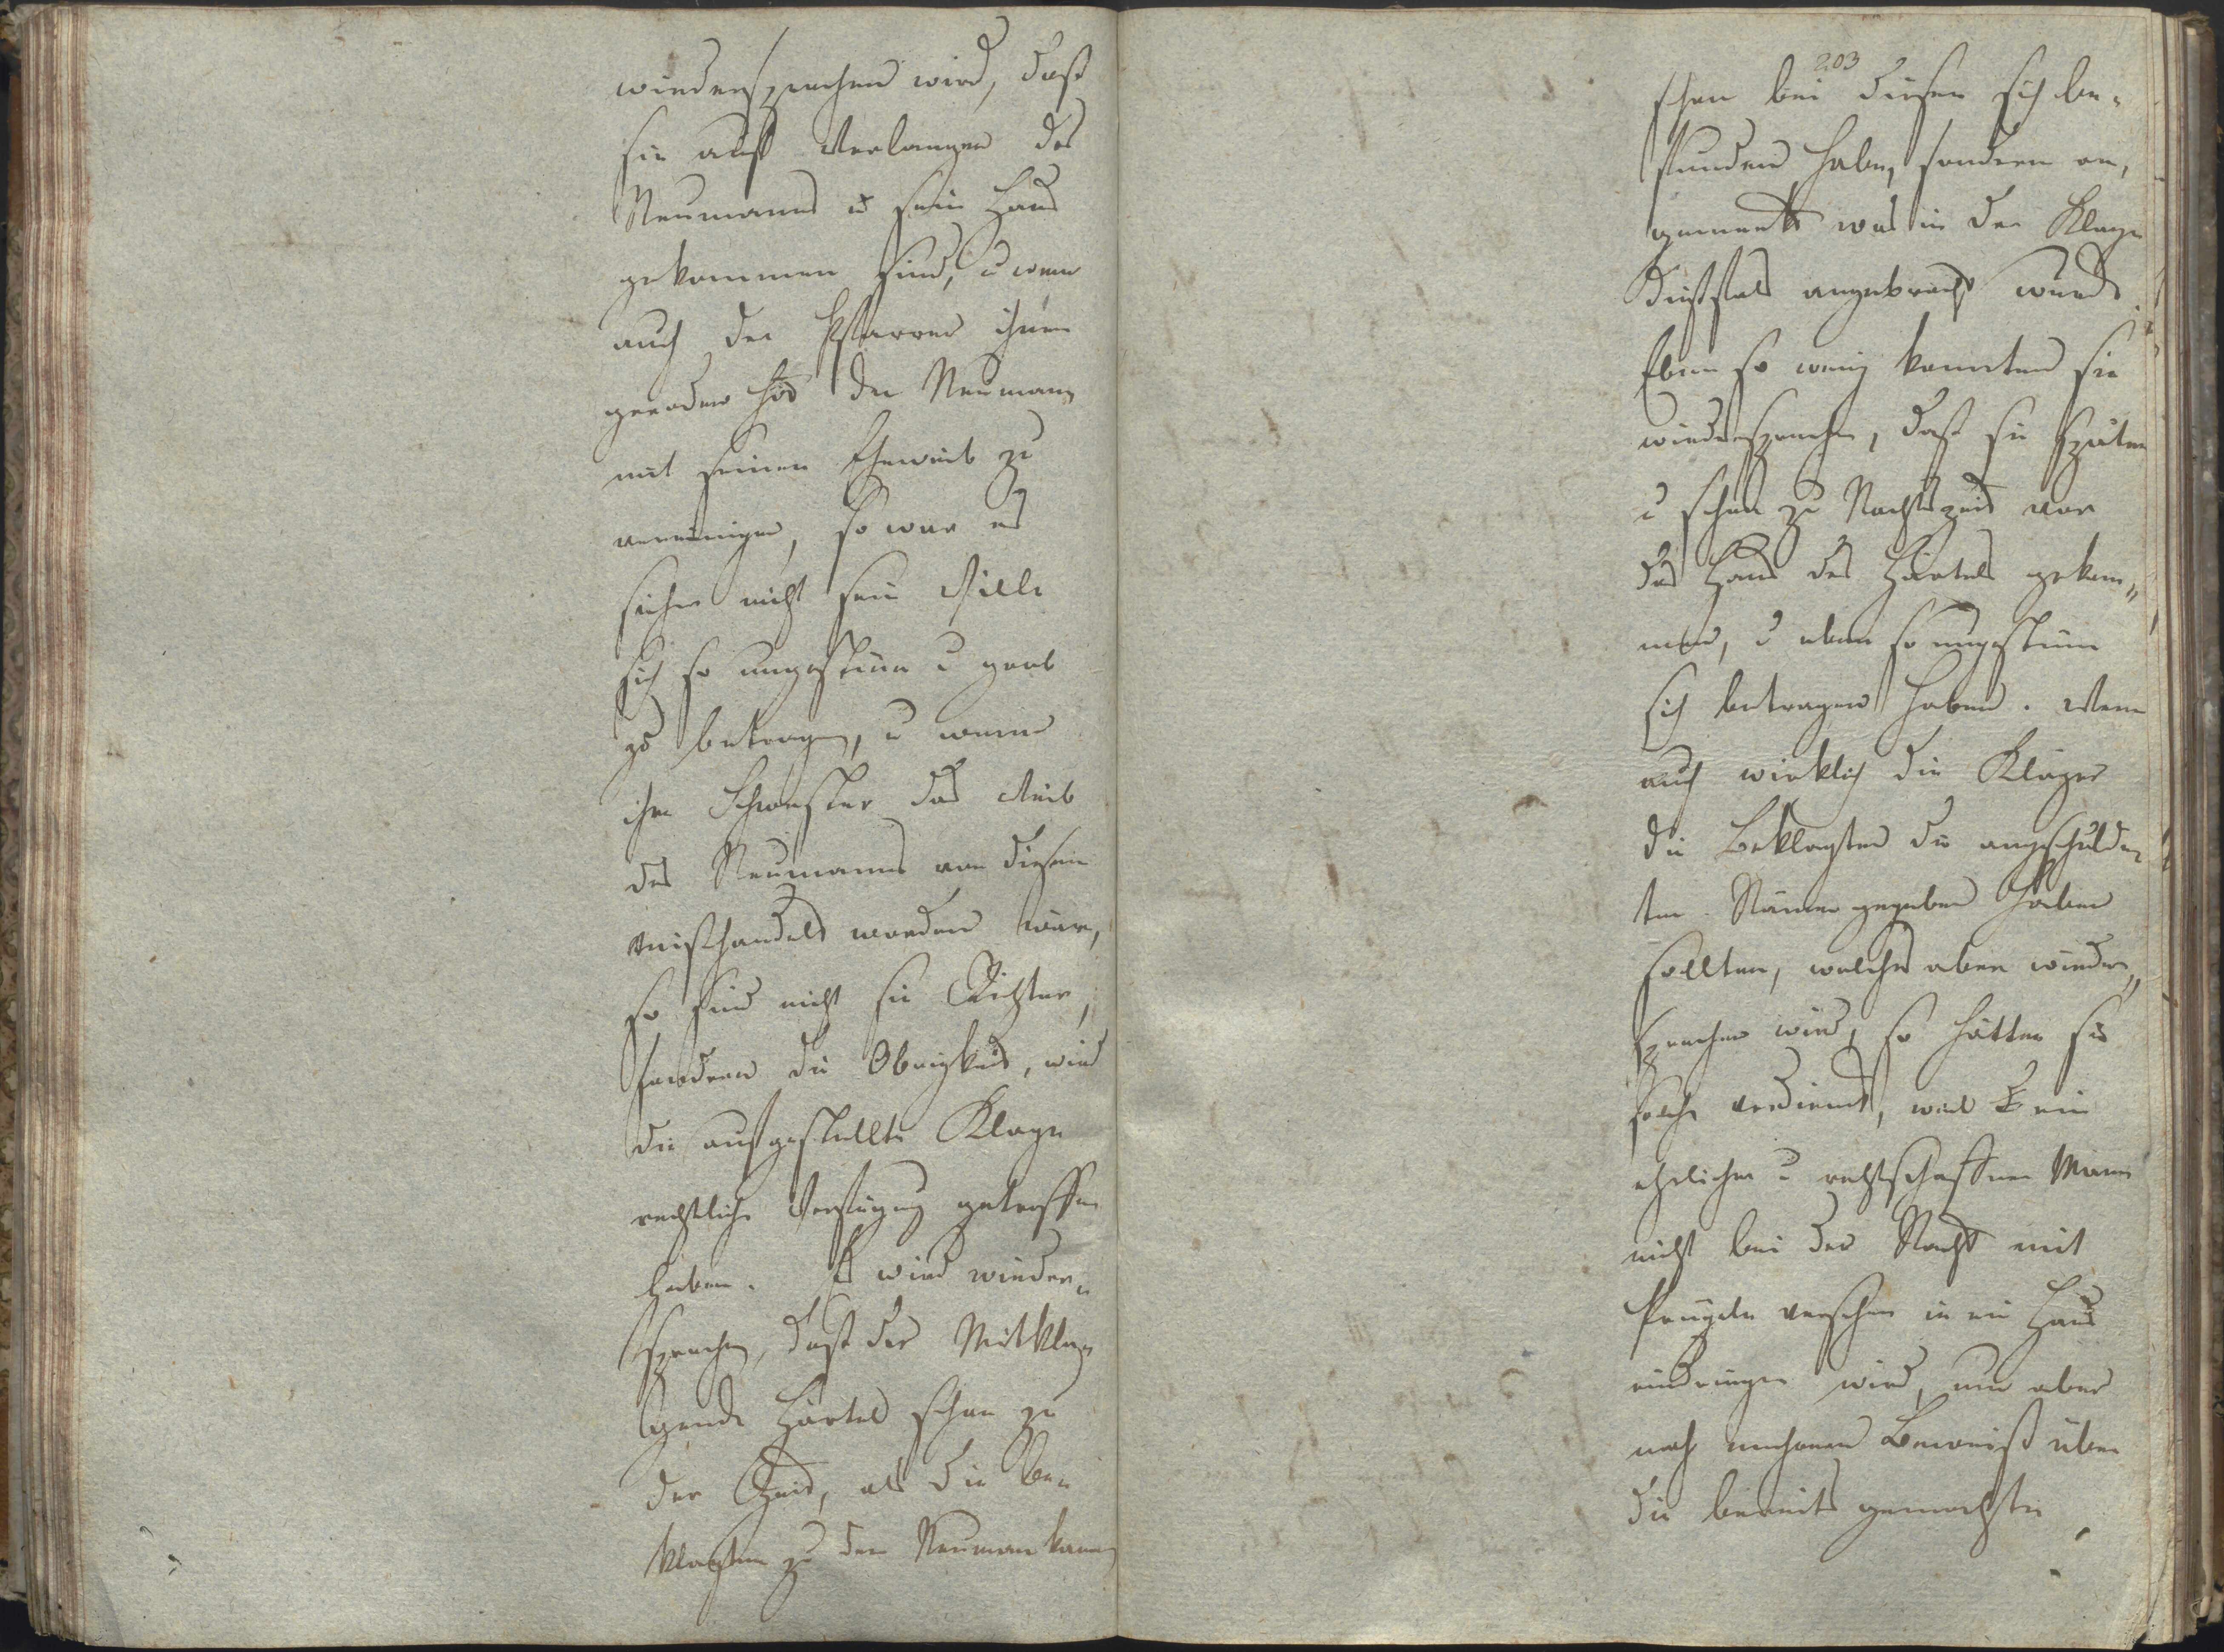 wiedersprochen wird, daß
sie auf Verlangen des
Neumanns in sein Haus
gekommen sind, u wenn
auch der Pfarrer ihnen
gerathen hat den Neumann
mit seinen Eheweib zu
vereinigen, so war es
sicher nicht sein Wille
sich so ungestüm u grob
zu betragen, u wenn
ihre Schwester das Weib
des Neumanns von diesem
mißhandelt worden wäre,
so sind nicht sie Richter,
sondern die Obrigkeit, wird
die aufgestellte Klage
rechtliche Verfügung getroffen
haben. Es wird wieder„
sprochen, daß der Mitkla„
gende Härtel schon zu
der Zeit, als die Be„
klagten zu den Neuman kamen
203
schon bei diesen sich be„
funden habe, sondern an„
gemerkt was in der Klage
dießfals angebracht wurde.
Eben so wenig konnten sie
wiedersprechen, daß sie später
u schon zu Nachtszeit vor
das Haus des Härtels gekom„
men, u eben so ungestüm
sich betragen haben. Wenn
auch wirklich die Kläger
die Beklagten die angeschulde„
ten Namen gegeben haben
sollten, welches aber wieder„
sprochen wird, so hätten sie
solche verdient, weil ein
ehrlicher u rechtschaffner Mann
nicht bei der Nacht mit
Prügeln versehen in ein Haus
eindringen wird, um aber
noch mehreren Beweiß über
die bereits gemachten